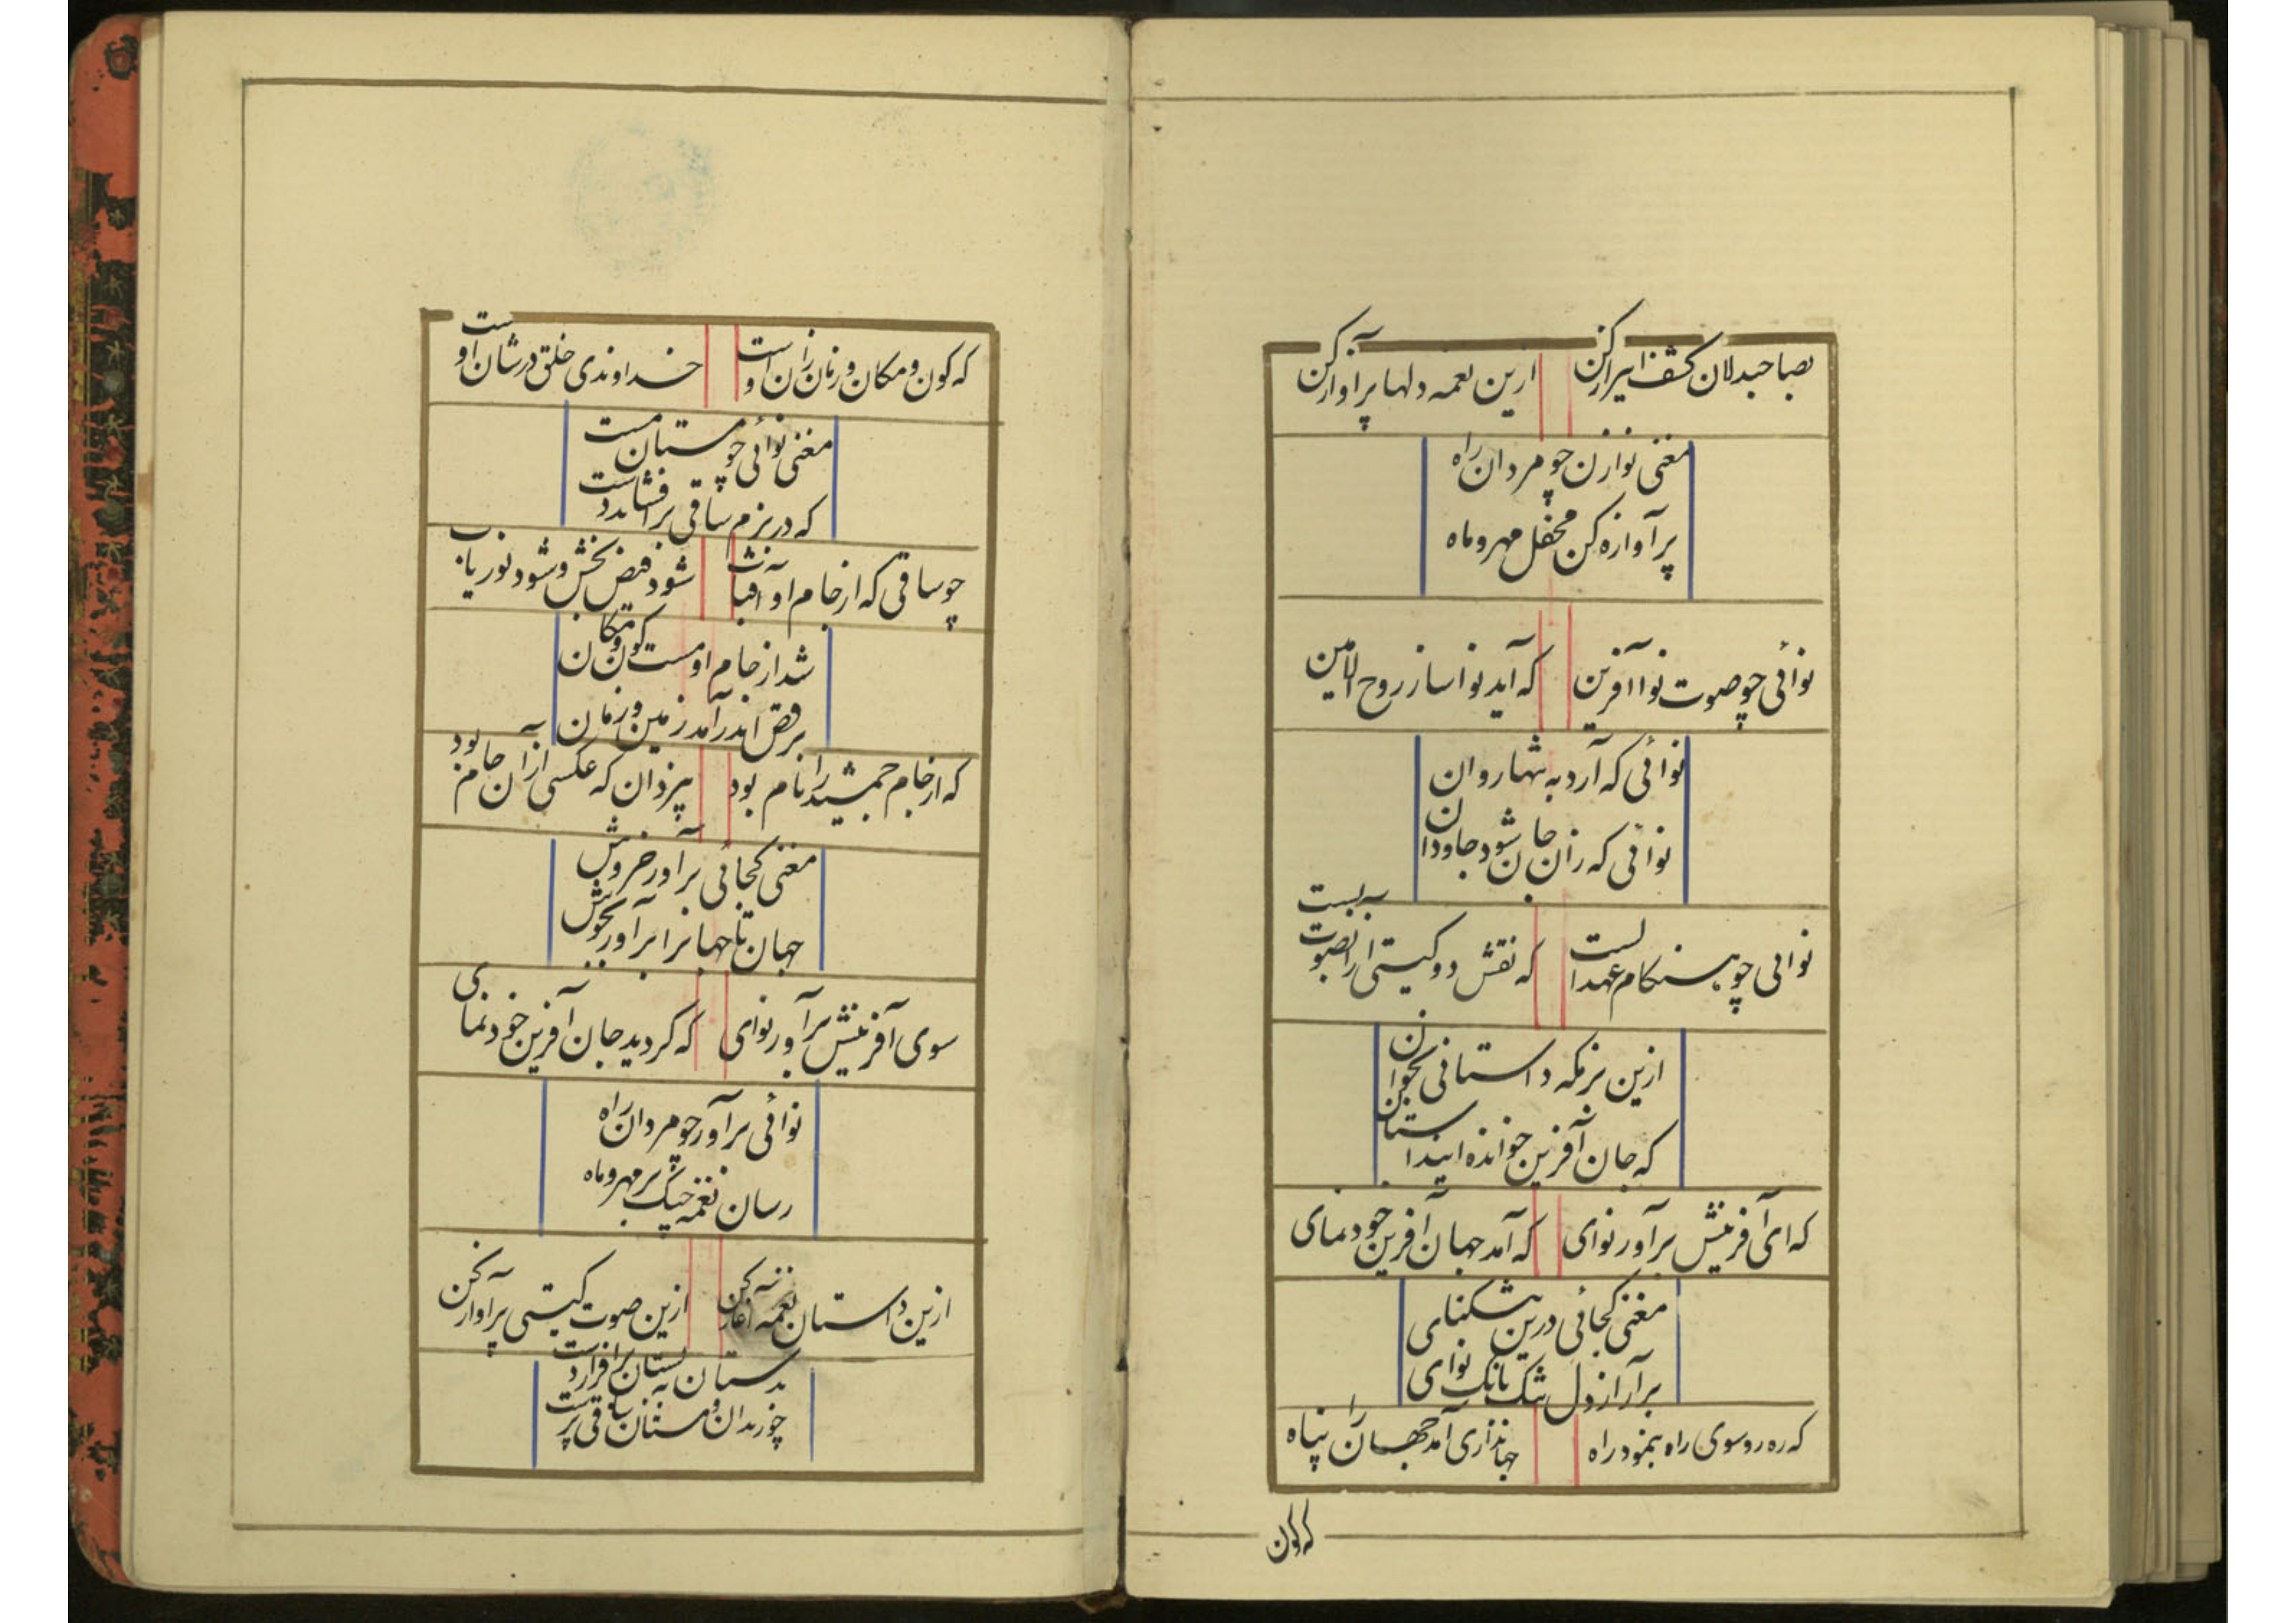 بصاحبدلان کشف اسرار کن
ازین نغمه دلها پر آواز کن
مغنی نوازن چو مردان راه
پر آوازه کن محفل مهر و ماه
نوائی چو صوت نوا آفرین
که آید نواساز روح الامین
نوائی که آرد به تنها روان
نوائی که زان جان شود جاودان
نوائی چو هنگام عهد الست
که نقش دو گیتی از انصوت بست
ازین بزمگه داستانی بخوان
که جان آفرین خوانده اینداستان
که ای آفرینش برآور نوای
که آمد جهان آفرین خودنمای
مغنی کجائی درین تنگنای
برآر از دل تنگ بانگ نوای
که ره رو سوی راه بنمود راه
جهانداری آمد جهان را پناه
که کون
که کون و مکان و زمان زان اوست
خداوندی خلق در شان اوست
مغنی نوائی چو مستان مست
که در بزم ساقی برافشاند دست
چو ساقی که از جام او آفتاب
شود فیض بخش و شود نور یاب
شد از جام او مست کون و مکان
برقص اندر آمد زمین و زمان
که از جام جمشید را نام بود
یزدان که عکسی از آن جام بود
مغنی کجائی برآور خروش
جهان تا جهانرا برآور بجوش
سوی آفرینش برآور نوای
که گردید جان آفرین خودنمای
نوائی برآور چو مردان راه
رسان نغمه چنگ بر مهر و ماه
ازین داستان نغمه آغاز کن
ازین صوت گیتی پر آواز کن
بدستان بستان برافراز دست
چو رندان و مستان ساقی پرست